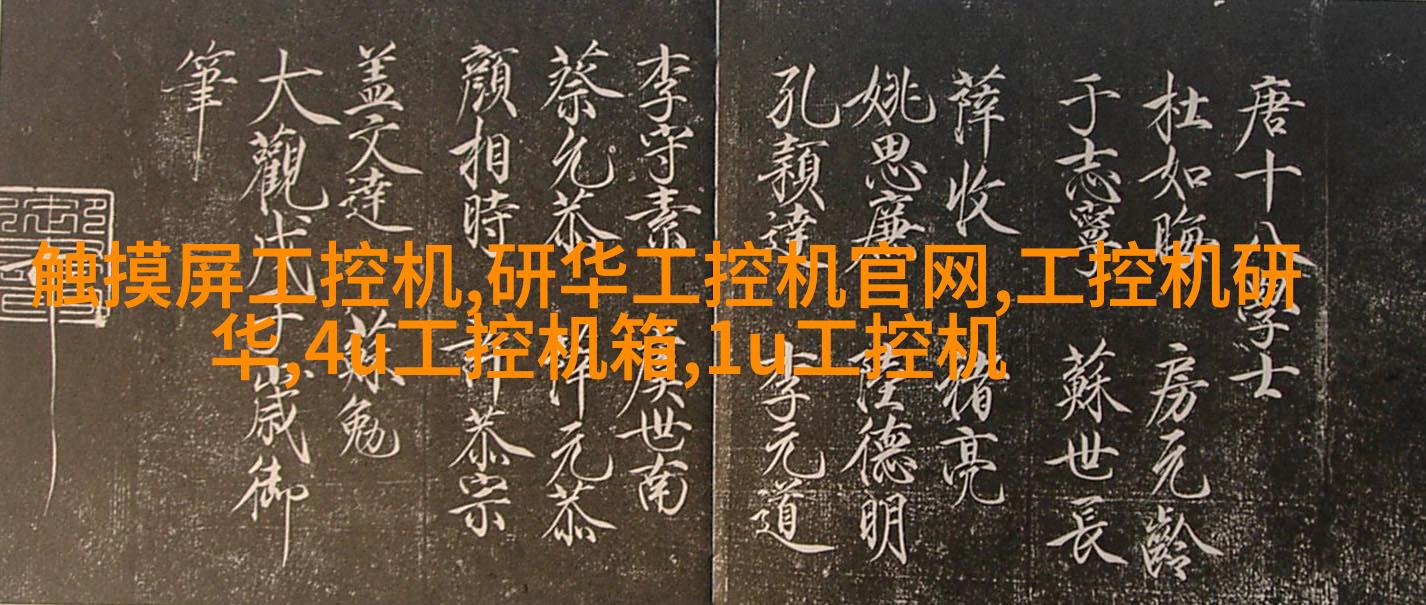 唐十八學士
杜如晦 房元齡
于志寧 蘇世長
薛收 褚亮
姚思廉 陸德明
孔穎達 李元道
李守素 虞世南
蔡允恭 薛元恭
顔相時 許恭宗
盖文達 蘇勉
大觀戊子歲御
筆
触摸屏工控机,研华工控机官网,工控机研
华,4u工控机箱,1u工控机